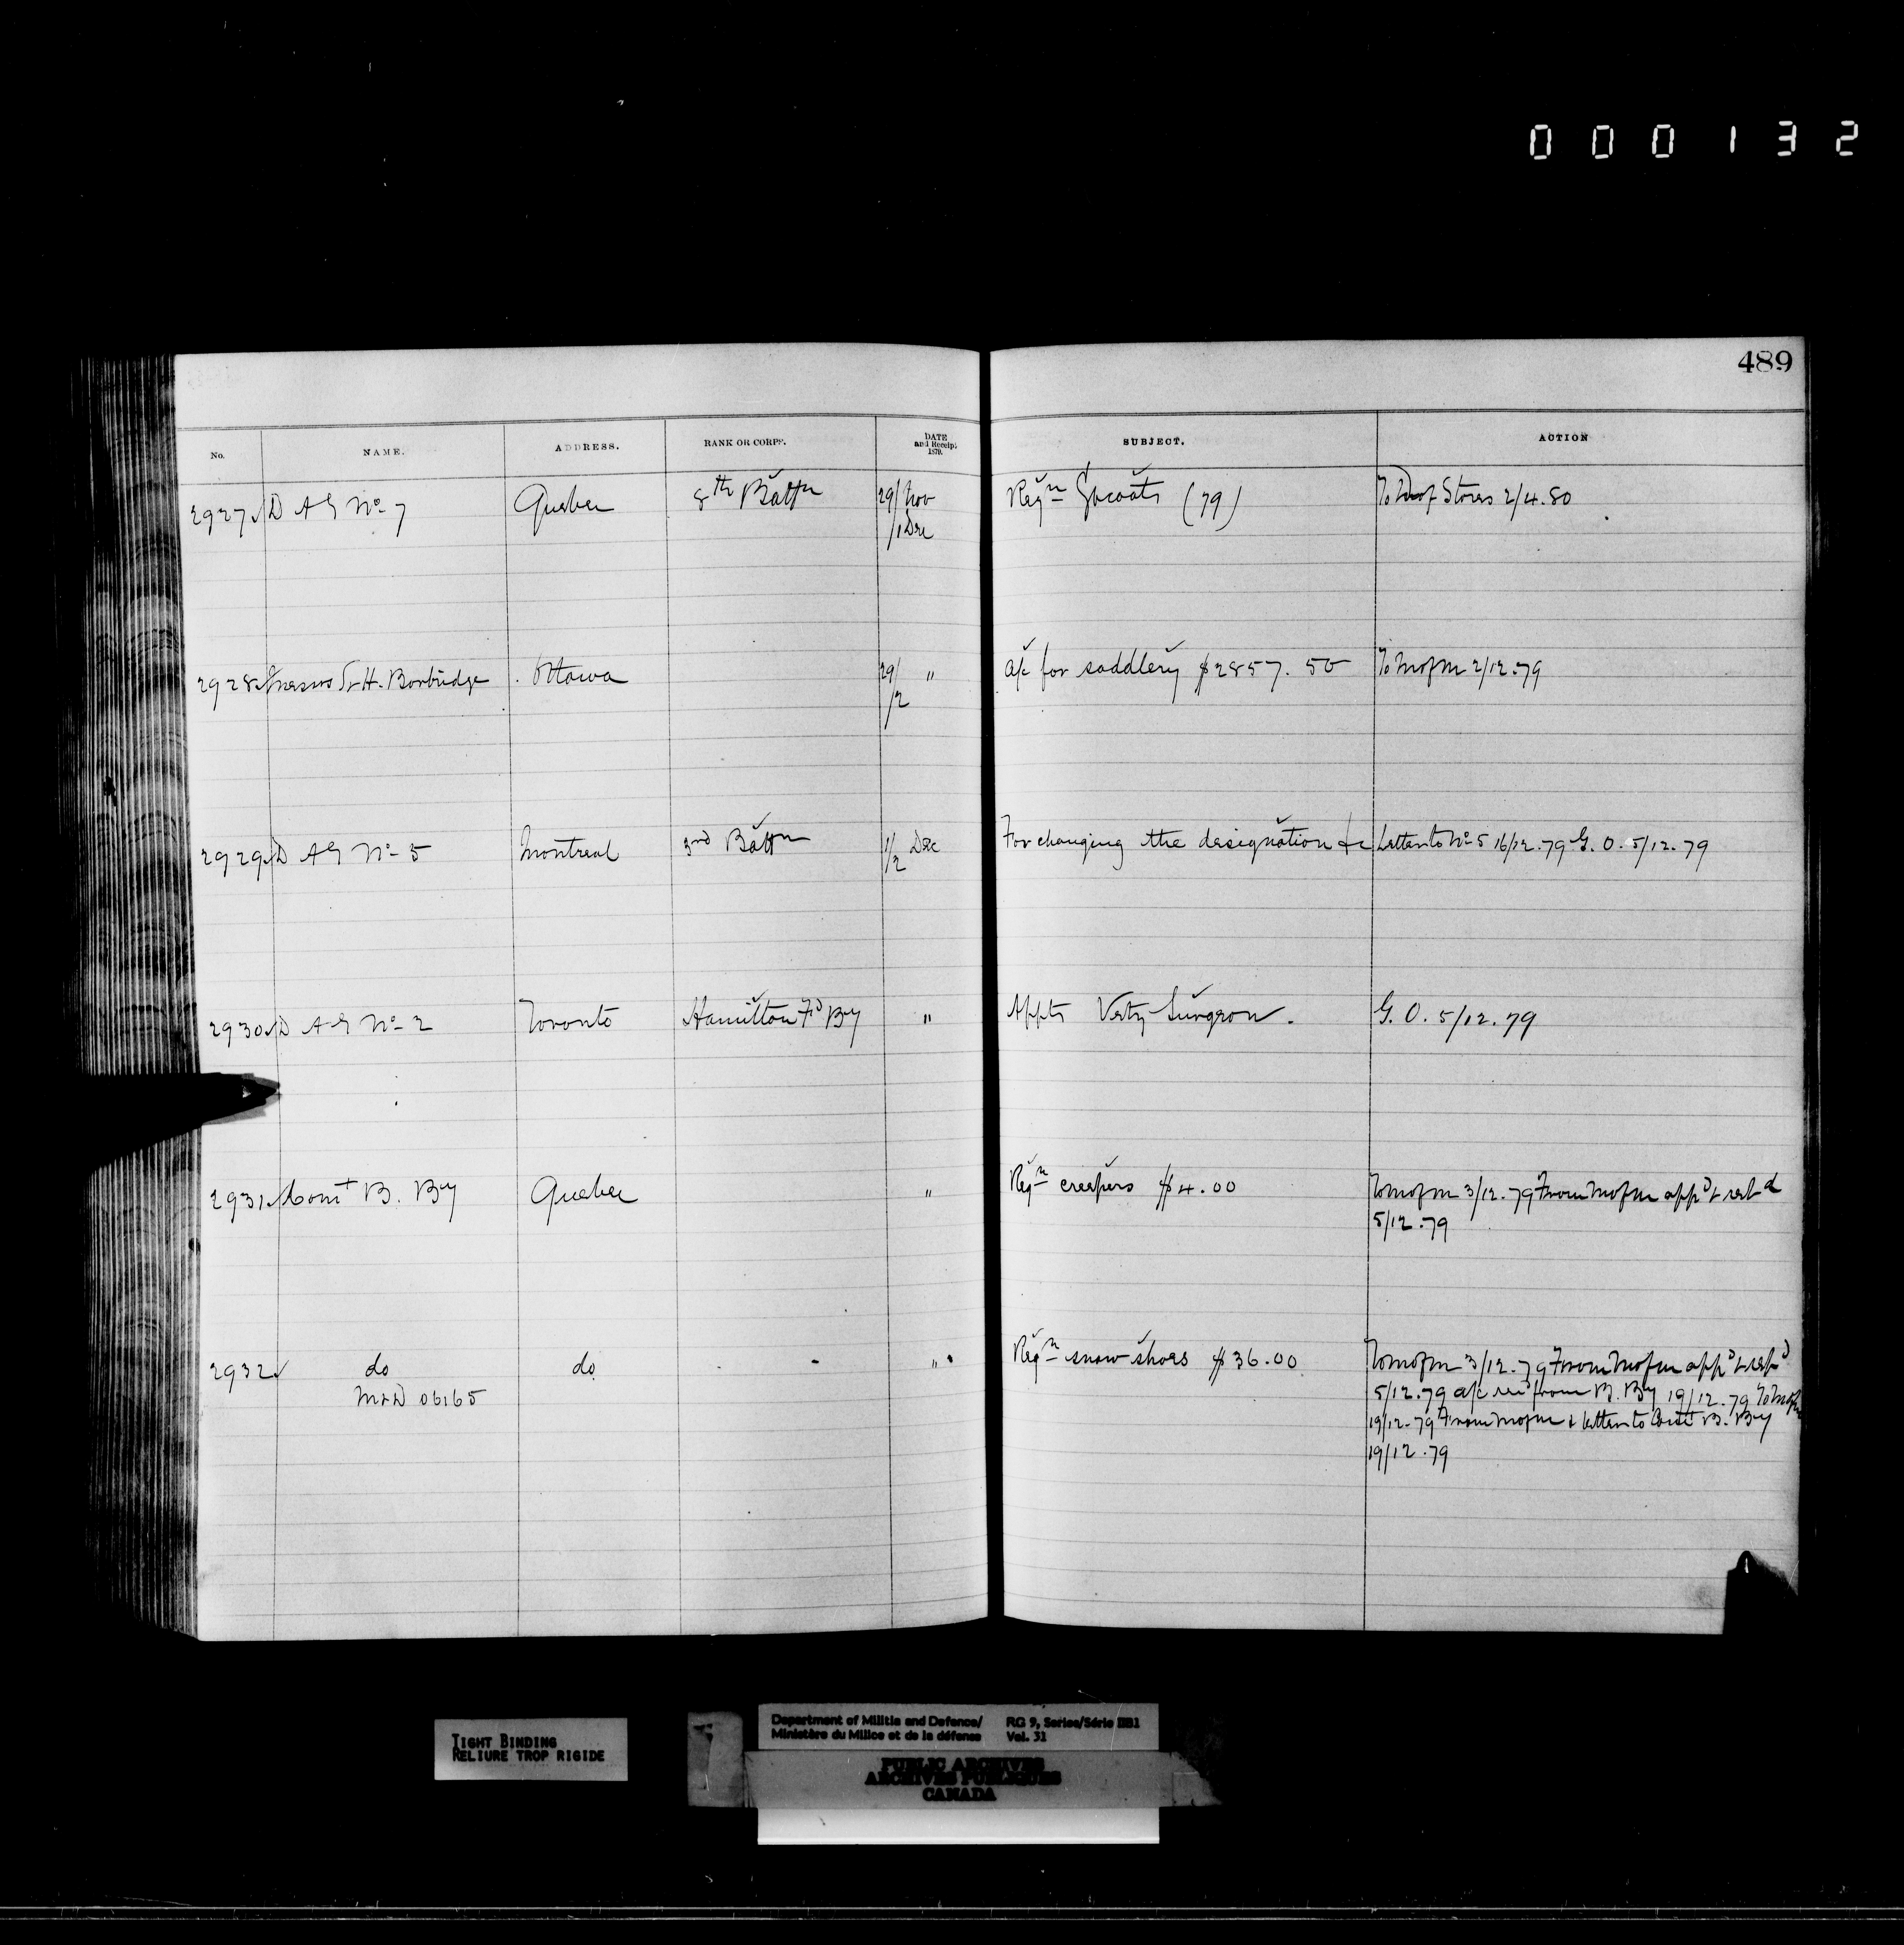 000132
489
No. NAME. ADDRESS. RANK OR CORPS. DATE and Receipt 1879. SUBJECT. ACTION
2927 D A G No 7 Quebec 8th Battn 29/Nov Reqn Gtcoats (79) To D of Stores 2/4.80
/1 Dec
2928 Messrs S & H. Borbridge Ottawa 29/ " a/c for saddlery $2857.50 To M of M 2/12.79
/2
2929 D A G No 5 Montreal 3rd Battn 1/ Dec For changing the designation &c Letter to No 5 16/12.79 G.O. 5/12.79
/2
2930 D A G No 2 Toronto Hamilton Fd By " Appts Vety Surgeon. G.O. 5/12.79
2931 Comt B. By Quebec " Reqn creepers $4.00 To M of M 3/12.79 From M of M appd & retd
5/12.79
2932 do do " Reqn snow shoes $36.00 To M of M 3/12.79 From M of M appd & retd
M&D 06165 5/12.79 a/c recd from B. By 19/12.79 To M of M
19/12.79 From M of M & letter to Comt B. By
19/12.79
TIGHT BINDING
RELIURE TROP RIGIDE
Department of Militia and Defence/ RG 9, Series/Série IIB1
Ministère du Milice et de la défense Vol. 31
PUBLIC ARCHIVES
ARCHIVES PUBLIQUES
CANADA